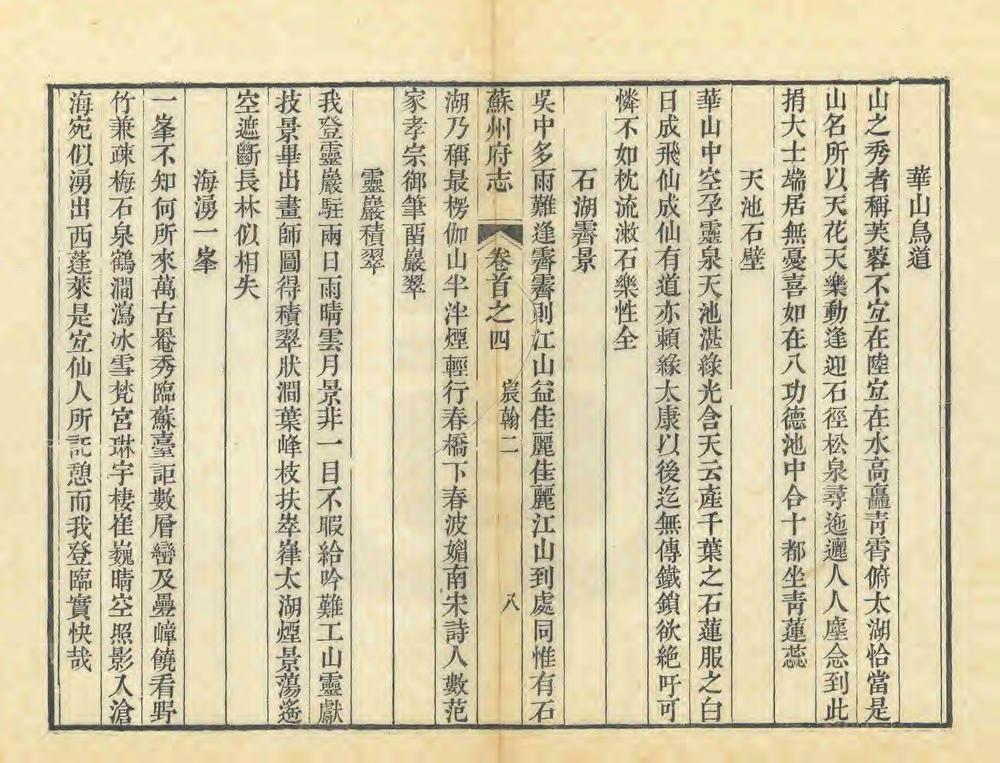 華山鳥道
山之秀者稱芙蓉不宜在陸宜在水高矗青霄俯太湖恰當是
山名所以天花天樂動逢迎石徑松泉尋迤邐人人塵念到此
捐大士端居無憂喜如在八功德池中合十都坐青蓮蕊
天池石壁
華山中空孕靈泉天池湛綠光含天云產千葉之石蓮服之白
日成飛仙成仙有道亦賴緣太康以後迄無傳鐵鎖欲絶吁可
憐不如枕流漱石樂性全
石湖霽景
吳中多雨難逢霽霽則江山益佳麗佳麗江山到處同惟有石
蘇州府志 卷首之四 宸翰二 八
湖乃稱最楞伽山半泮煙輕行春橋下春波媚南宋詩人數范
家孝宗御筆留巖翠
靈巖積翠
我登靈巖駐兩日雨晴雲月景非一目不暇給吟難工山靈獻
技景畢出畫師圖得積翠狀澗葉峰枝扶崒嵂太湖煙景蕩遙
空遮斷長林似相失
海湧一峯
一峯不知何所來萬古毓秀臨蘇臺詎數層巒及疊嶂饒看野
竹兼疎梅石泉鶴澗瀉冰雪梵宮琳宇棲崔巍晴空照影入滄
海宛似湧出西蓬萊是宜仙人所託憩而我登臨實快哉